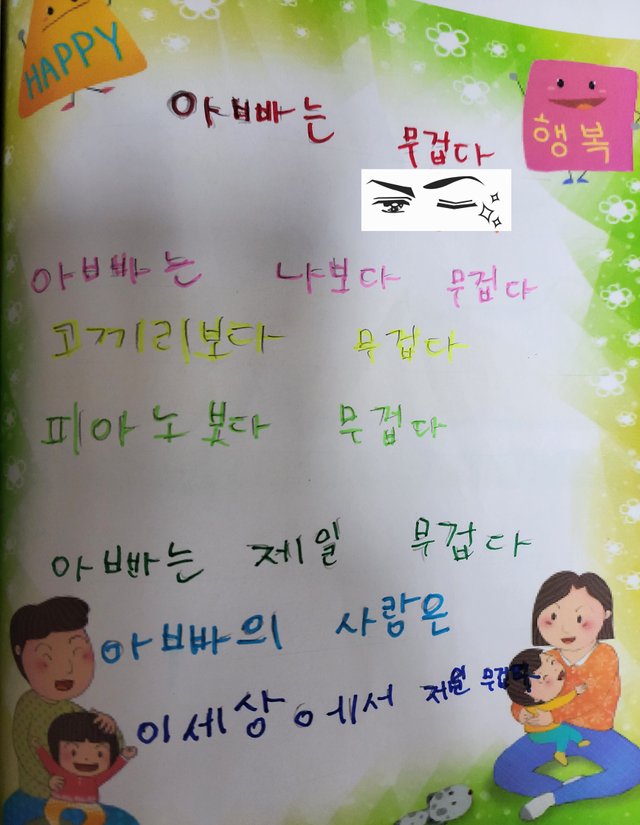 HAPPY
행복
아빠는
무겁다
아빠는 나보다 무겁다
고끼리보다 무겁다
피아노봇다 무겁다
아빠는 제일 무겁다
아빠의 사랑은
이세상에서 제일 무겁다